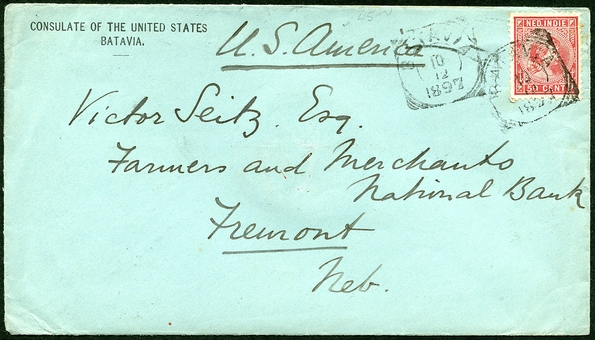 CONSULATE OF THE UNITED STATES
BATAVIA.
U. S. America
NED. INDIE
50 CENT
BATAVIA
Victor Seitz. Esq.
Farmers and Merchants
National Bank
Fremont
Neb.